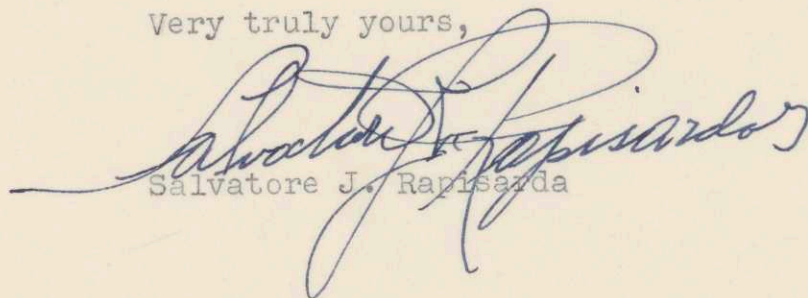 Very truly yours,
Salvatore J. Rapisarda
Salvatore J. Rapisarda